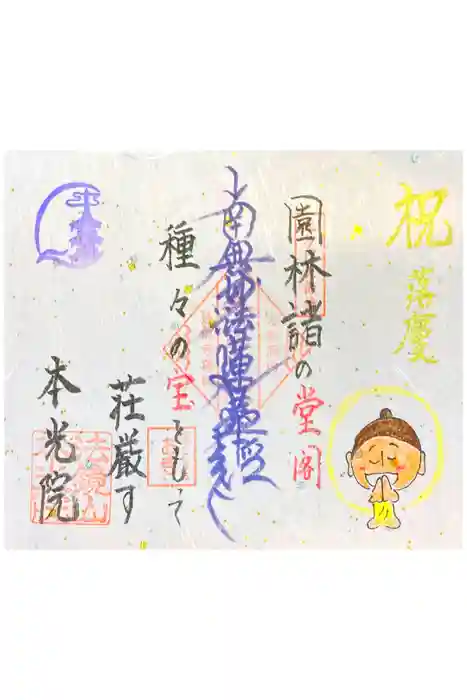 祝
落慶
園林諸の堂閣
南無妙法蓮華経
種々の宝をもって
荘厳す
本光院